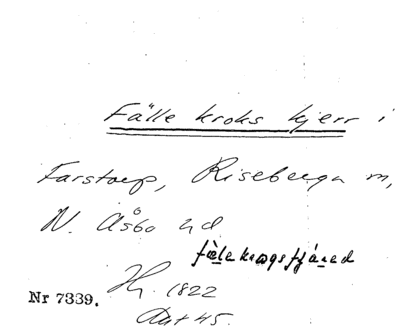 Fälle kroks kjerr i
Farstorp, Riseberga sn,
N. Åsbo hd
fälekrogsfjáred
Nr 7339. Hy. 1822
Akt 45.